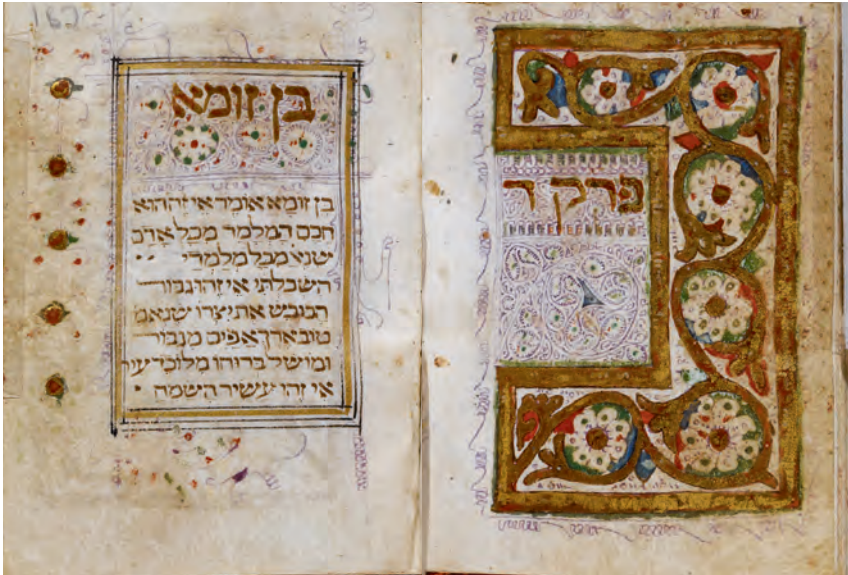 פרק ד
בן זומא
בן זומא אומר אי זה הוא
חכם המלמד מכל אדם
שנא מכל מלמדי
השכלתי אי זהו גבור
הכובש את יצרו שנאמ
טוב ארך אפים מגבור
ומושל ברוחו מלוכד עיר
אי זהו עשיר השמח